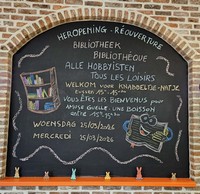 HEROPENING - RÉOUVERTURE
BIBLIOTHEEK
BIBLIOTHÈQUE
ALLE HOBBYISTEN
TOUS LES LOISIRS
WELKOM VOOR KNABBELTJE-NATJE
VOUS ÊTES LES BIENVENUS POUR
AMUSE GUEULE-UNE BOISSON
WOENSDAG 25/03/2026
MERCREDI 25/03/2026